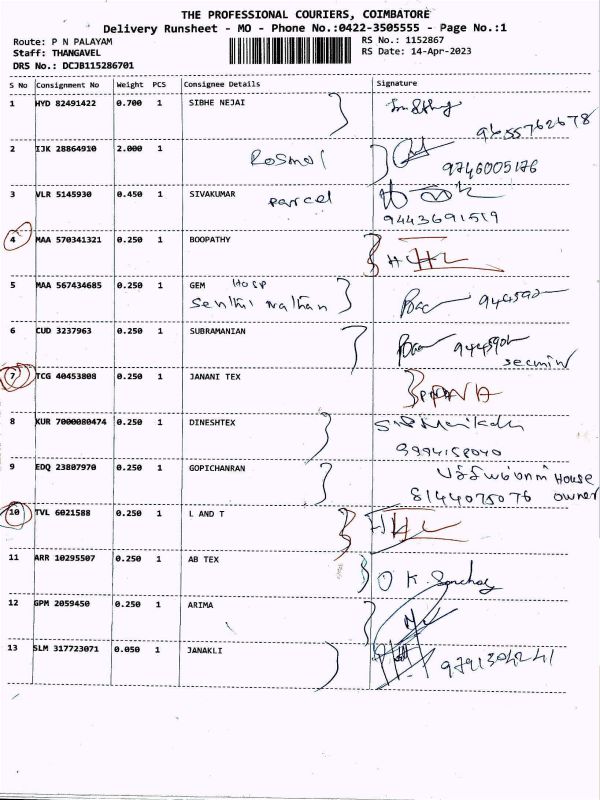 THE PROFESSIONAL COURIERS, COIMBATORE
Delivery Runsheet - MO - Phone No.:0422-3505555 - Page No.:1
Route: P N PALAYAM RS No.: 1152867
Staff: THANGAVEL RS Date: 14-Apr-2023
DRS No.: DCJB115286701
S No Consignment No Weight PCS Consignee Details Signature
1 HYD 82491422 0.700 1 SIBHE NEJAI
9655762678
2 IJK 28864910 2.000 1
9746005176
3 VLR 5145930 0.450 1 SIVAKUMAR
parcel
9443691519
4 MAA 570341321 0.250 1 BOOPATHY
5 MAA 567434685 0.250 1 GEM Hosp
Senthil Nathan
6 CUD 3237963 0.250 1 SUBRAMANIAN
7 TCG 40453808 0.250 1 JANANI TEX
8 KUR 7000080474 0.250 1 DINESHTEX
9994158040
9 EDQ 23807970 0.250 1 GOPICHANRAN
House
8144075076 owner
10 TVL 6021588 0.250 1 L AND T
11 ARR 10295507 0.250 1 AB TEX
O K
12 GPM 2059450 0.250 1 ARIMA
13 SLM 317723071 0.050 1 JANAKLI